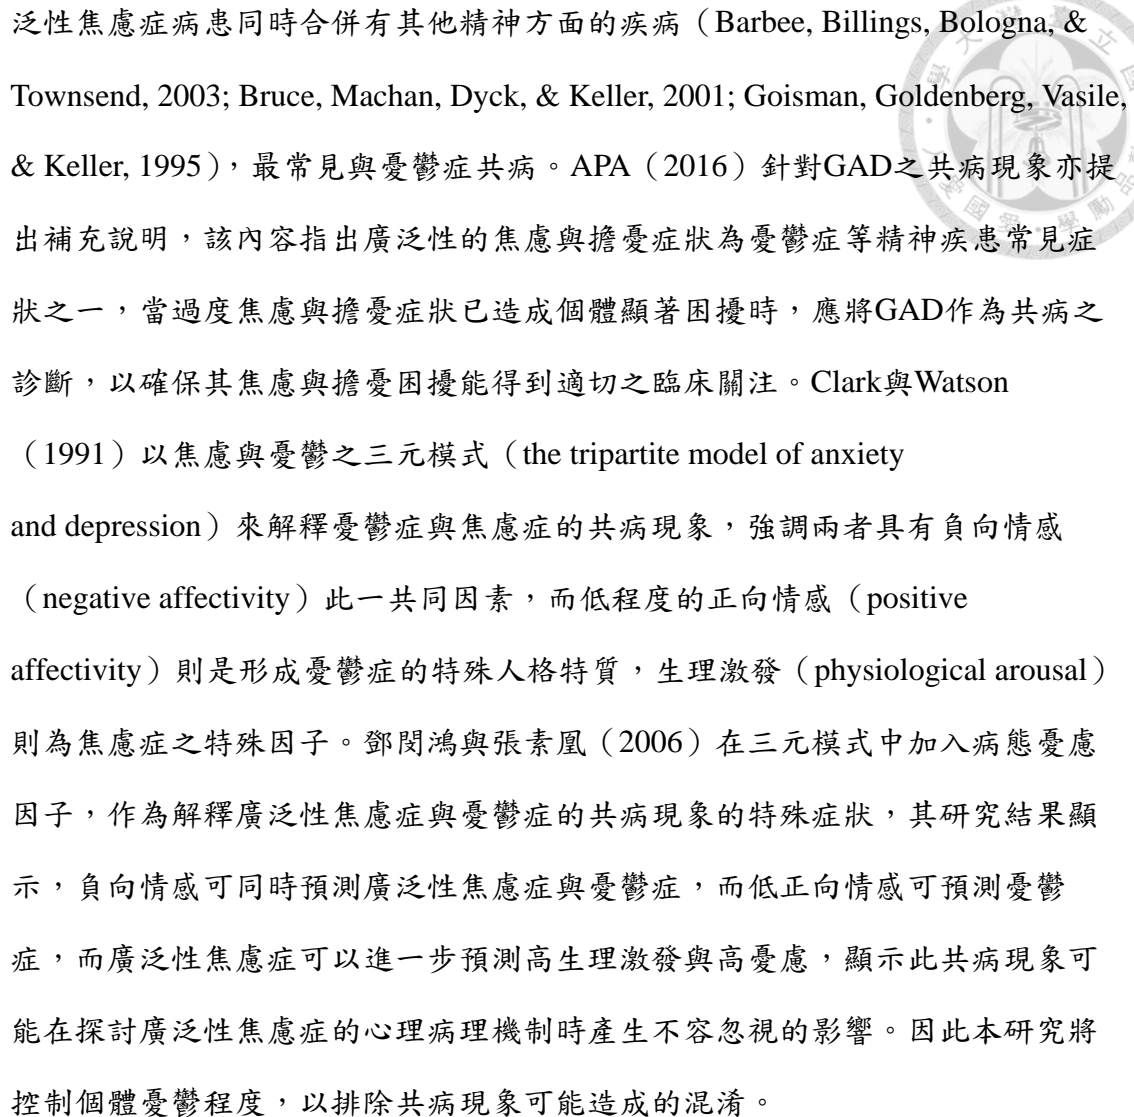 泛性焦慮症病患同時合併有其他精神方面的疾病（Barbee, Billings, Bologna, &
Townsend, 2003; Bruce, Machan, Dyck, & Keller, 2001; Goisman, Goldenberg, Vasile,
& Keller, 1995），最常見與憂鬱症共病。APA（2016）針對GAD之共病現象亦提
出補充說明，該內容指出廣泛性的焦慮與擔憂症狀為憂鬱症等精神疾患常見症
狀之一，當過度焦慮與擔憂症狀已造成個體顯著困擾時，應將GAD作為共病之
診斷，以確保其焦慮與擔憂困擾能得到適切之臨床關注。Clark與Watson
（1991）以焦慮與憂鬱之三元模式（the tripartite model of anxiety
and depression）來解釋憂鬱症與焦慮症的共病現象，強調兩者具有負向情感
（negative affectivity）此一共同因素，而低程度的正向情感（positive
affectivity）則是形成憂鬱症的特殊人格特質，生理激發（physiological arousal）
則為焦慮症之特殊因子。鄧閔鴻與張素凰（2006）在三元模式中加入病態憂慮
因子，作為解釋廣泛性焦慮症與憂鬱症的共病現象的特殊症狀，其研究結果顯
示，負向情感可同時預測廣泛性焦慮症與憂鬱症，而低正向情感可預測憂鬱
症，而廣泛性焦慮症可以進一步預測高生理激發與高憂慮，顯示此共病現象可
能在探討廣泛性焦慮症的心理病理機制時產生不容忽視的影響。因此本研究將
控制個體憂鬱程度，以排除共病現象可能造成的混淆。